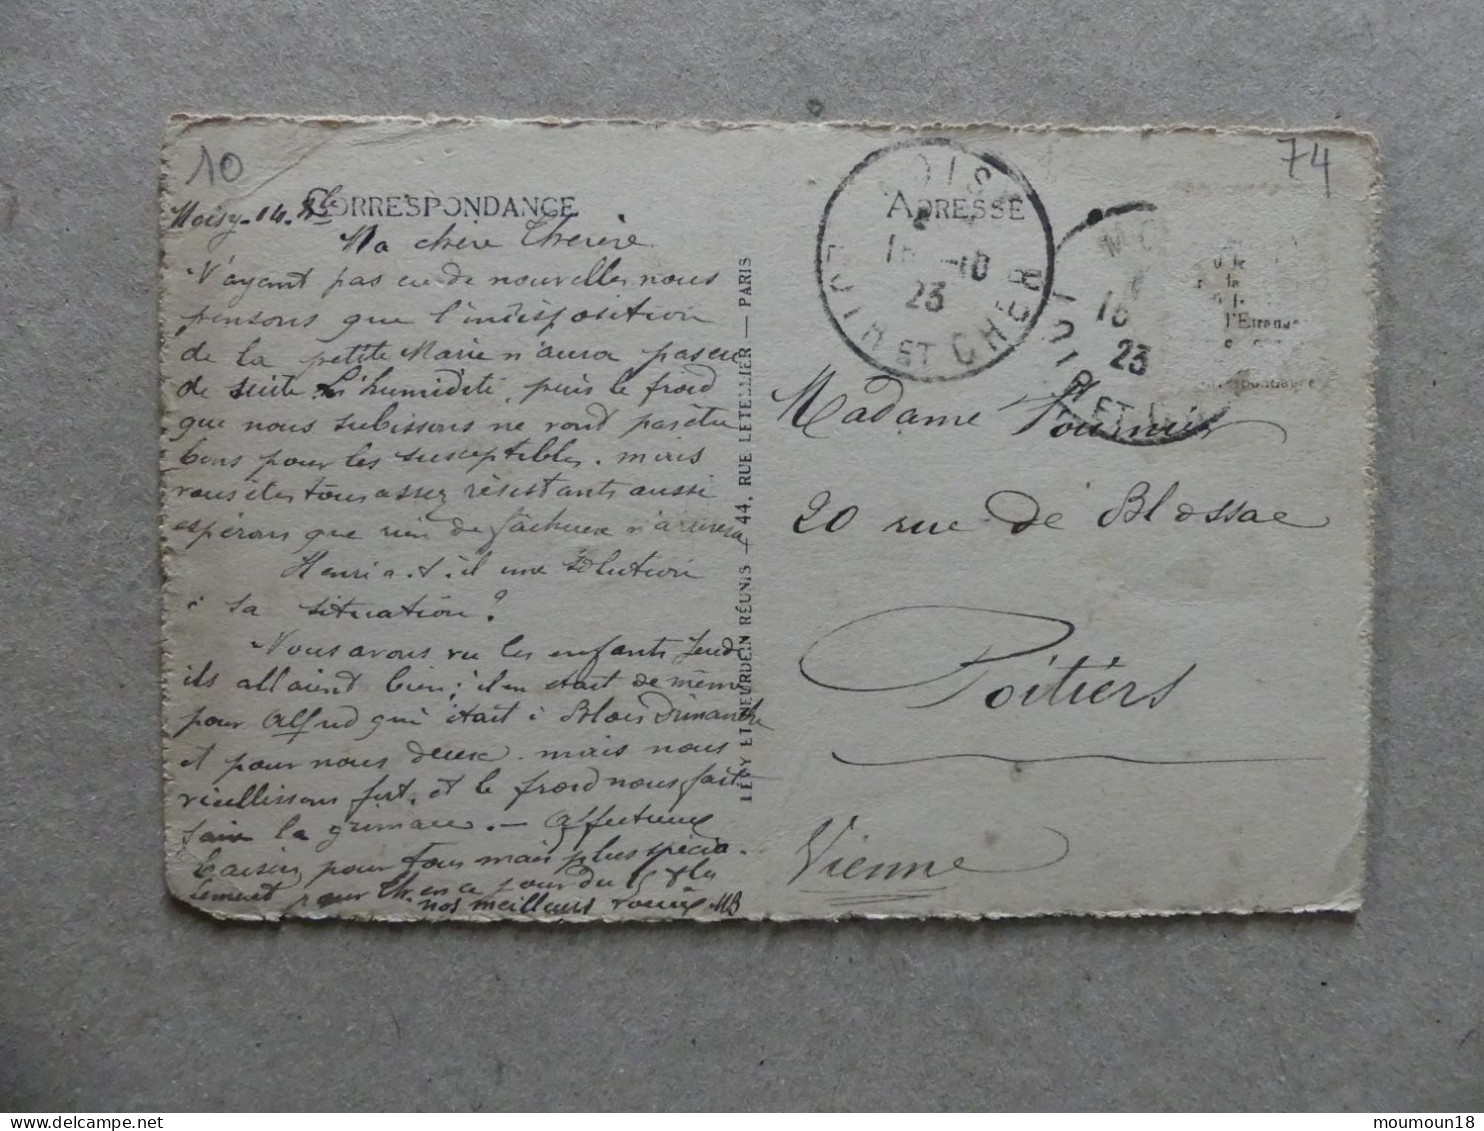 10
74
CORRESPONDANCE
ADRESSE
Moisy - 14 - 8bre
Ma chère Thérèse
N'ayant pas eu de nouvelles nous
pensons que l'indisposition
de la petite Marie n'aura pas eu
de suite. L'humidité, puis le froid
que nous subissons ne sont pas très
bons pour les susceptibles. mais
vous êtes tous assez résistants aussi
espérons que rien de fâcheux n'arrivera
Henri a-t-il une solution
à sa situation?
Nous avons vu les enfants Jeudi
ils allaient bien; il en était de même
pour Alfred qui était à Blois Dimanche
et pour nous deux. mais nous
vieillissons fort, et le froid nous fait
faire la grimace. — Affectueux
baisers pour tous mais plus spécia-
lement pour Th. en ce jour du 15
nos meilleurs MB
LEVY ET NEURDEIN RÉUNIS — 44, RUE LETELLIER — PARIS
MOISY
16 -10
23
LOIR ET CHER
MO
16
23
LOIR ET
l'Etranger
Madame Fournier
20 rue de Blossac
Poitiers
Vienne
moumoun18